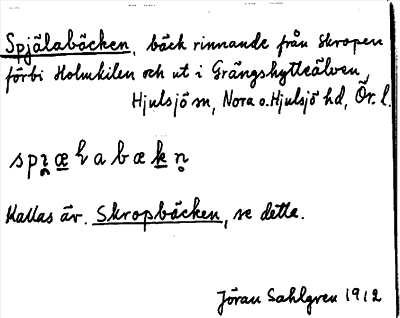 Spjälabäcken, bäck rinnande från Skropen
förbi Holmkilen och ut i Grängshytteälven
Hjulsjö sn, Nora o. Hjulsjö hd, Ör. l.
spı̯æ̲labæk̲n̥
Kallas äv. Skropbäcken, se detta.
Jöran Sahlgren 1912